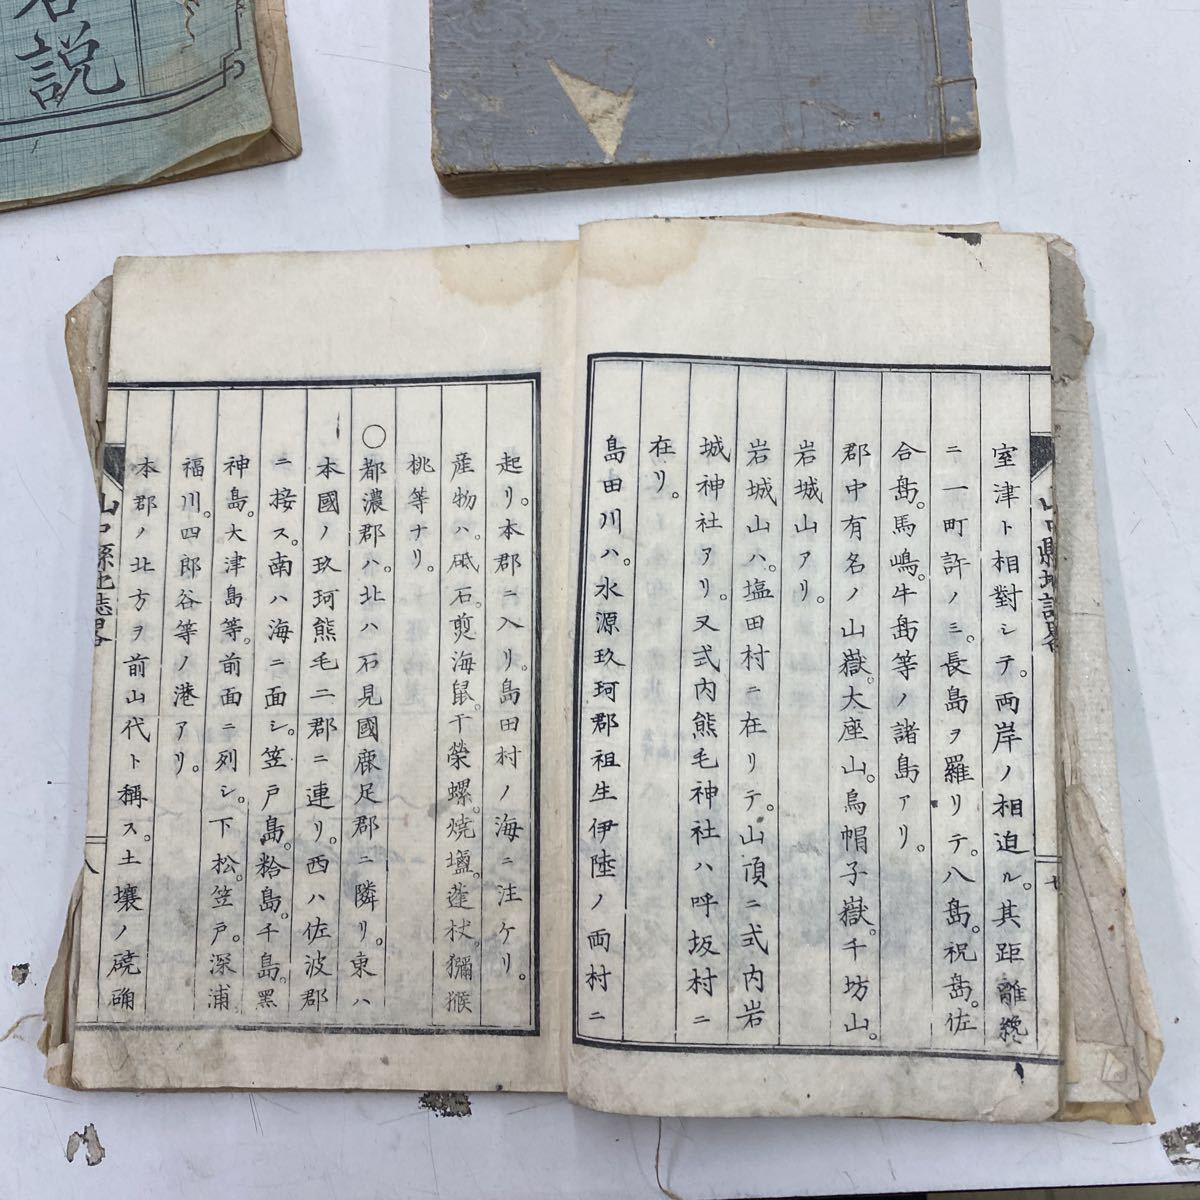 説
室津ト相對シテ。両岸ノ相迫ル。其距離纔
ニ一町許ノミ。長島ヲ羅リテ。八島。祝島。佐
合島。馬嶋。牛島等ノ諸島アリ。
郡中有名ノ山嶽。大座山。烏帽子嶽。千坊山。
岩城山アリ。
岩城山ハ。塩田村ニ在リテ。山頂ニ式内岩
城神社アリ。又式内熊毛神社ハ呼坂村ニ
在リ。
島田川ハ。水源玖珂郡祖生伊陸ノ両村ニ
起リ。本郡ニ入リ。島田村ノ海ニ注ケリ。
産物ハ。砥石。煎海鼠。干榮螺。焼塩。蓬杖。獼猴
桃等ナリ。
〇都濃郡ハ。北ハ石見國鹿足郡ニ隣リ。東ハ
本國ノ玖珂熊毛二郡ニ連リ。西ハ佐波郡
ニ接ス。南ハ海ニ面シ。笠戸島。粭島。千島。黒
神島。大津島等。前面ニ列シ。下松。笠戸。深浦
福川。四郎谷等ノ港アリ。
本郡ノ北方ヲ前山代ト稱ス。土壤ノ磽确
山口縣地誌畧
八